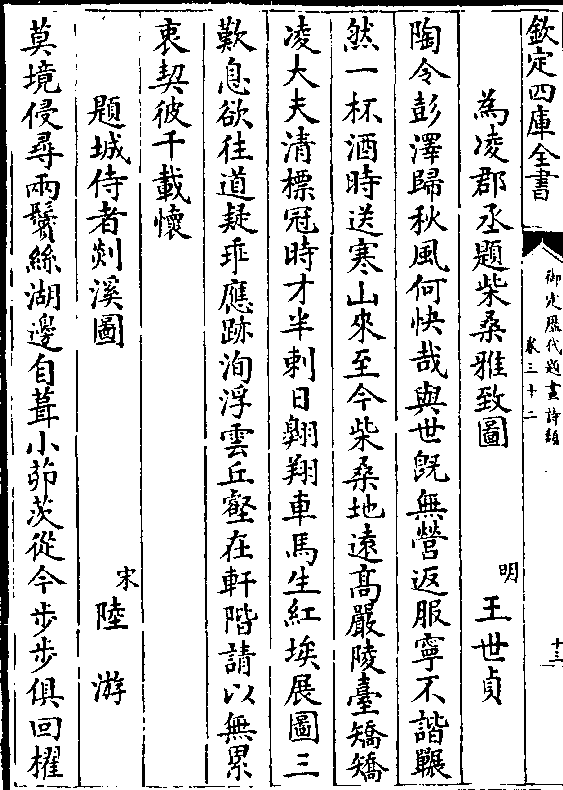 欽定四庫全書
御定歷代題畫詩類
卷三十二
十三
為凌郡丞題柴桑雅致圖
明王世貞
陶令彭澤歸秋風何快哉與世既無營返服寧不諧冁
然一杯酒時送寒山來至今柴桑地遠高嚴陵臺矯矯
凌大夫清標冠時才半刺日翺翔車馬生紅埃展圖三
歎息欲往道疑乖應跡洵浮雲丘壑在軒階請以無累
衷契彼千載懷
題城侍者剡溪圖
宋陸游
莫境侵尋兩鬢絲湖邊自葺小茆茨從今步步俱回櫂